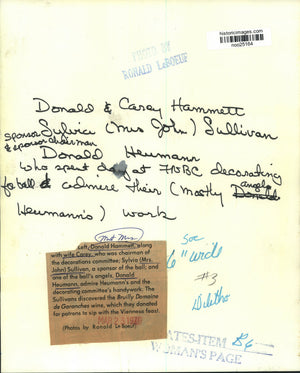 historicimages.com
noo25164
PHOTO BY
RONALD LeBOEUF
Donald & Carey Hammett
sponsor Sylvia (Mrs John) Sullivan
& sponsor chairman
Donald Heumann
who spent day at FNBC decorating
for ball & admire their (mostly Donald angel
Heumann's) work
Mr & Mrs
Left, Donald Hammett, along
with wife Carey, who was chairman of
the decorations committee; Sylvia (Mrs.
John) Sullivan, a sponsor of the ball; and
one of the ball's angels, Donald
Heumann, admire Heumann's and the
decorating committee's handywork. The
Sullivans discovered the Bruilly Domaine
de Garanches wine, which they donated
for patrons to sip with the Viennese feast.
(Photos by Ronald LeBoeuf)
MAR 29 1976
Soc
6" wide
#3
Dilitho
STATES-ITEM $6
WOMAN'S PAGE